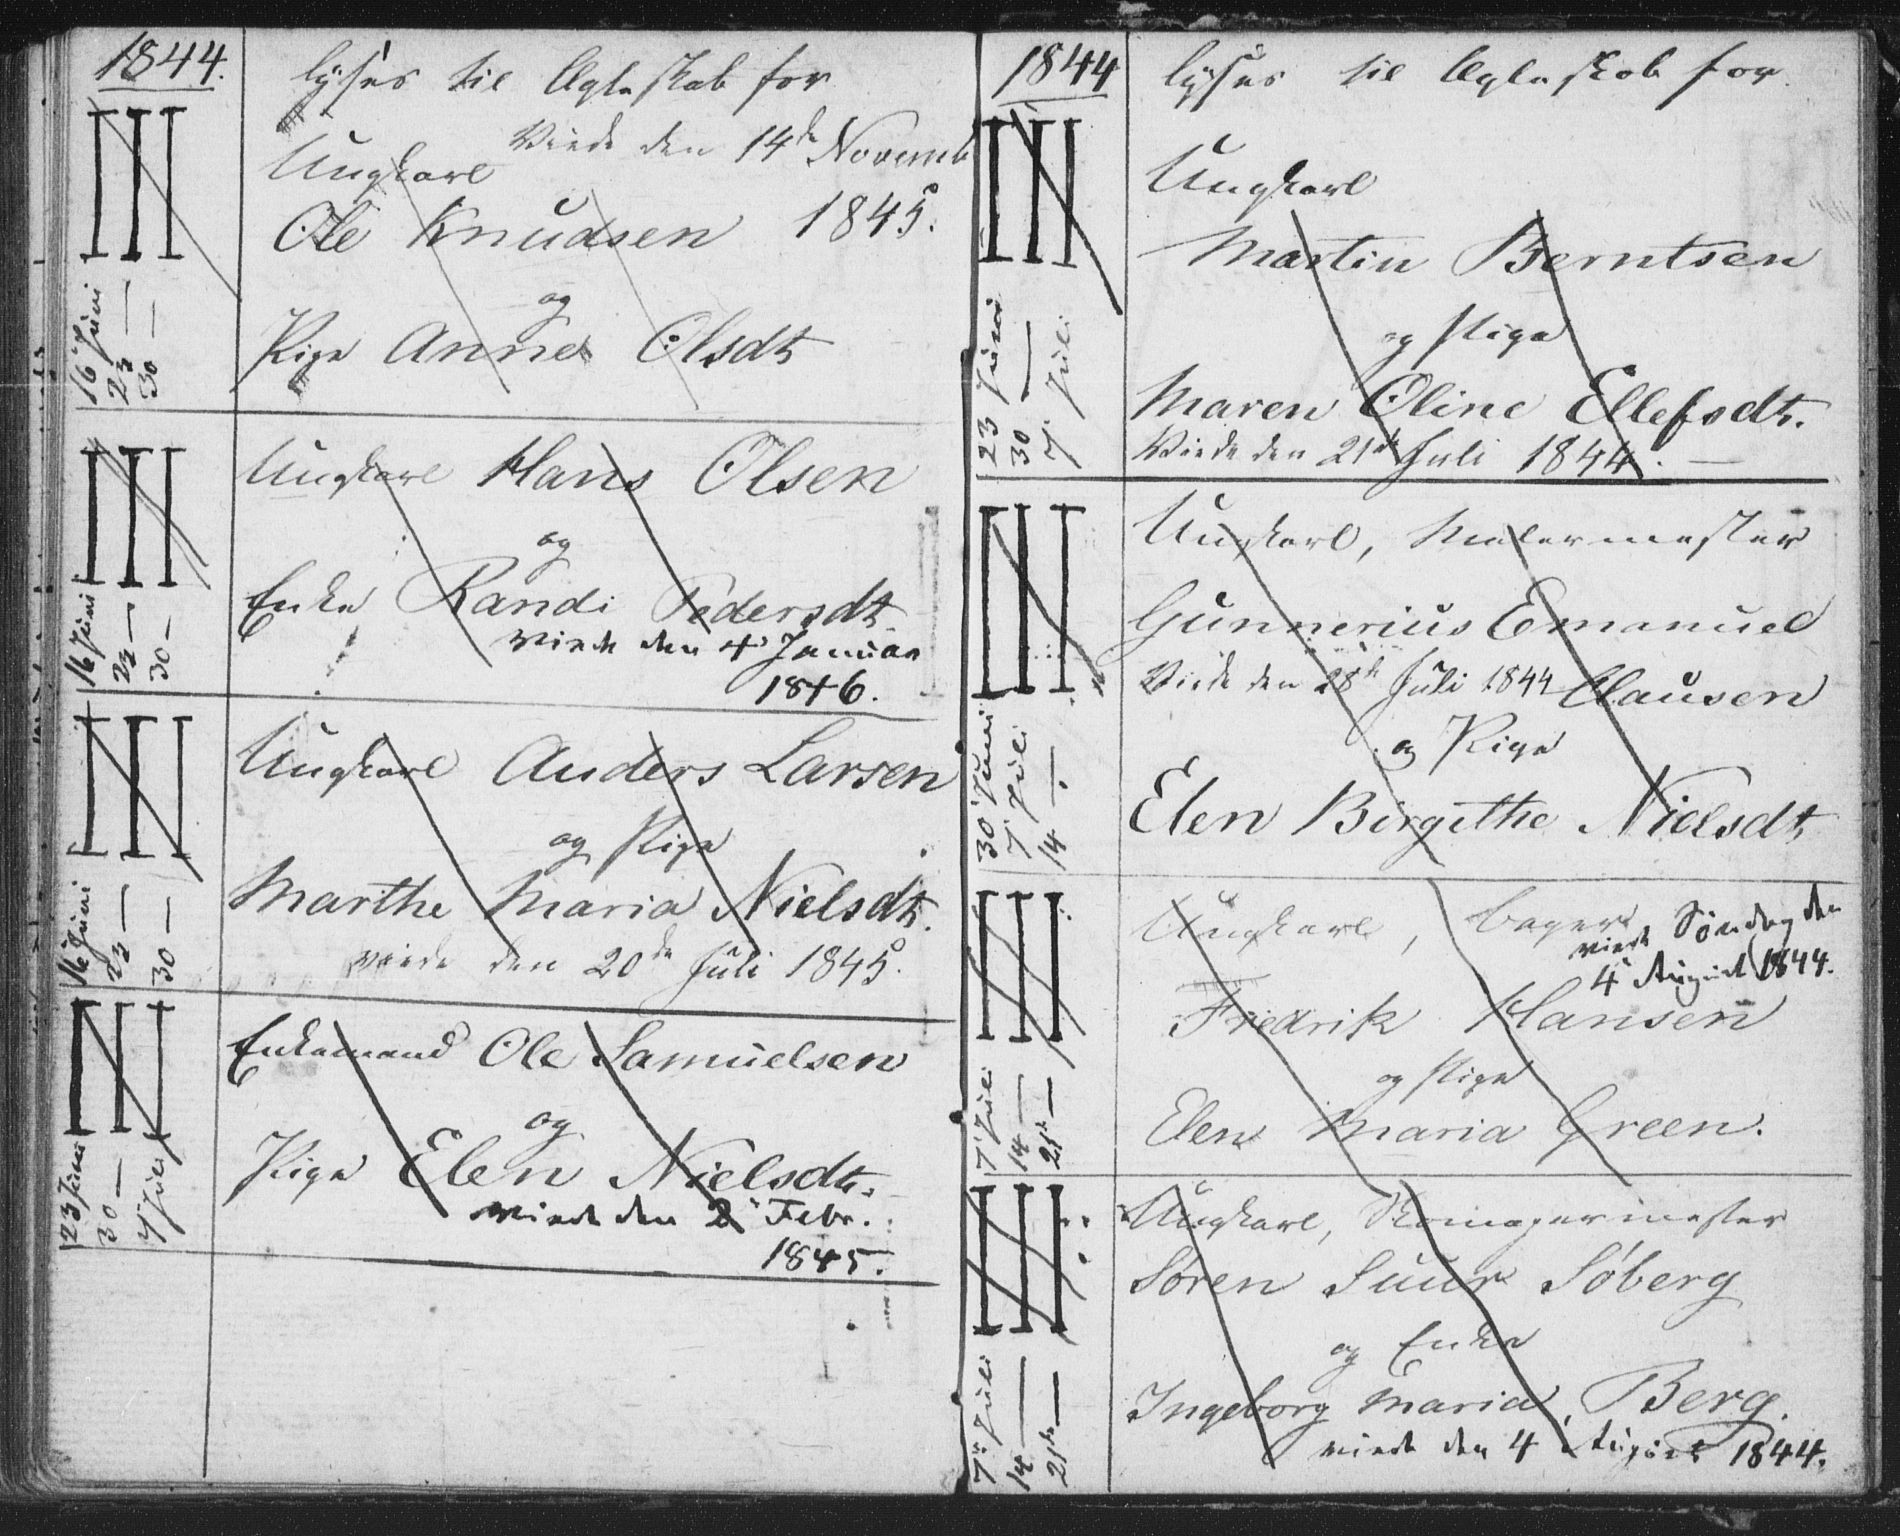 1844.
lyses til Ægteskab for
Viede den 14de Novemb
Ungkarl
Ole Knudsen 1845.
og
Pige Anne Olsdt
16 Juni
23 —
30 —
Ungkarl Hans Olsen
og
Enke Randi Pedersdt
viede den 4 Januar
1846.
16 Juni
23 —
30 —
Ungkarl Anders Larsen
og Pige
Marthe Maria Nielsdt.
viede den 20de Juli 1845.
16 Juni
23 —
30 —
Enkemand Ole Samuelsen
og
Pige Elen Nielsdt.
viede den 2 Febr.
1845.
23 Juni
30 —
7 Juli
1844
lyses til Ægteskab for
Ungkarl
Martin Berntsen
og Pige
Maren Oline Ellefsdt.
Viede den 21de Juli 1844. —
23 Juni
30 —
7 Juli
Ungkarl, Malermester
Gunnerius Emanuel
Viede den 28de Juli 1844 Clausen
og Pige
Elen Birgithe Nielsdt
30 Juni
7 Juli
14 —
Ungkarl, Bager
viede Søndag den
4 August 1844.
Fredrik Hansen
og Pige
Elen Maria Green.
7 Juli
14 —
21de —
Ungkarl, Skomagermester
Søren Suur Søberg
og Enke
Ingeborg Maria Berg.
viede den 4 August 1844.
7de Juli
14 —
21de —